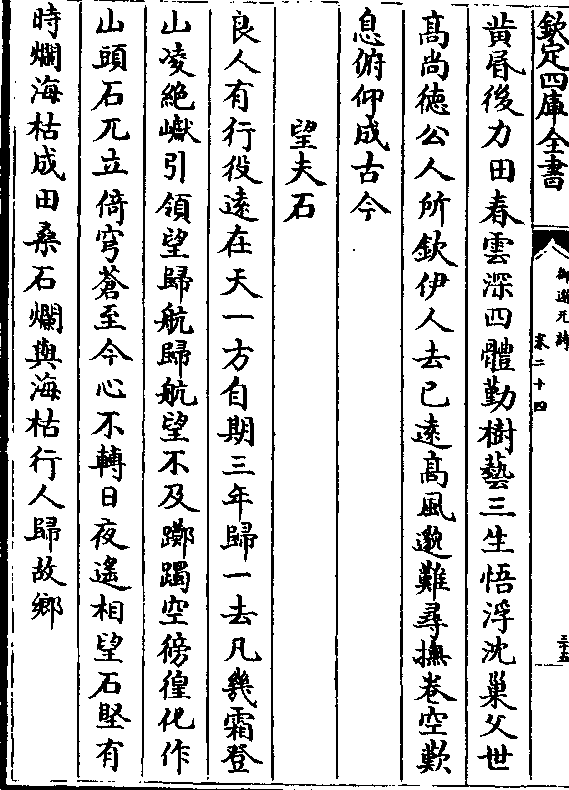 欽定四庫全書
御選元詩
卷二十四
三十五
黄昏後力田春雲深四體勤樹藝三生悟浮沈巢父世
髙尚徳公人所欽伊人去已逺髙風邈難尋撫卷空歎
息俯仰成古今
望夫石
良人有行役逺在天一方自期三年歸一去凡幾霜登
山凌絶巘引領望歸航歸航望不及躑躅空徬徨化作
山頭石兀立倚穹蒼至今心不轉日夜遙相望石堅有
時爛海枯成田桑石爛與海枯行人歸故鄉